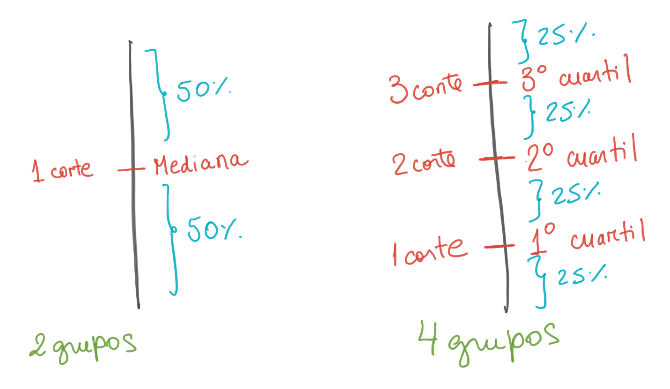 50%
1 corte Mediana
50%
2 grupos
25%
3 corte 3º cuartil
25%
2 corte 2º cuartil
25%
1 corte 1º cuartil
25%
4 grupos